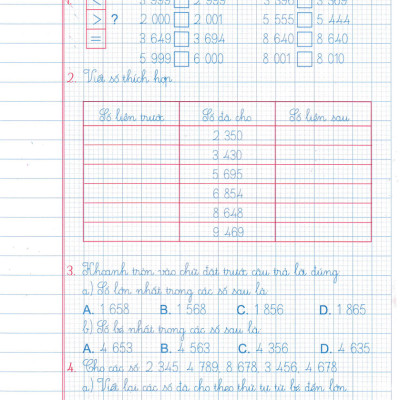 1. <
> ? 2 000 □ 2 001 5 555 □ 5 444
= 3 649 □ 3 694 8 640 □ 8 640
5 999 □ 6 000 8 001 □ 8 010
2. Viết số thích hợp
Số liền trước Số đã cho Số liền sau
2 350
3 430
5 695
6 854
8 648
9 469
3. Khoanh tròn vào chữ đặt trước câu trả lời đúng
a) Số lớn nhất trong các số sau là
A. 1 658 B. 1 568 C. 1 856 D. 1 865
b) Số bé nhất trong các số sau là
A. 4 653 B. 4 563 C. 4 356 D. 4 635
4. Cho các số 2 345, 4 789, 8 678, 3 456, 4 678
a) Viết lại các số đã cho theo thứ tự từ bé đến lớn